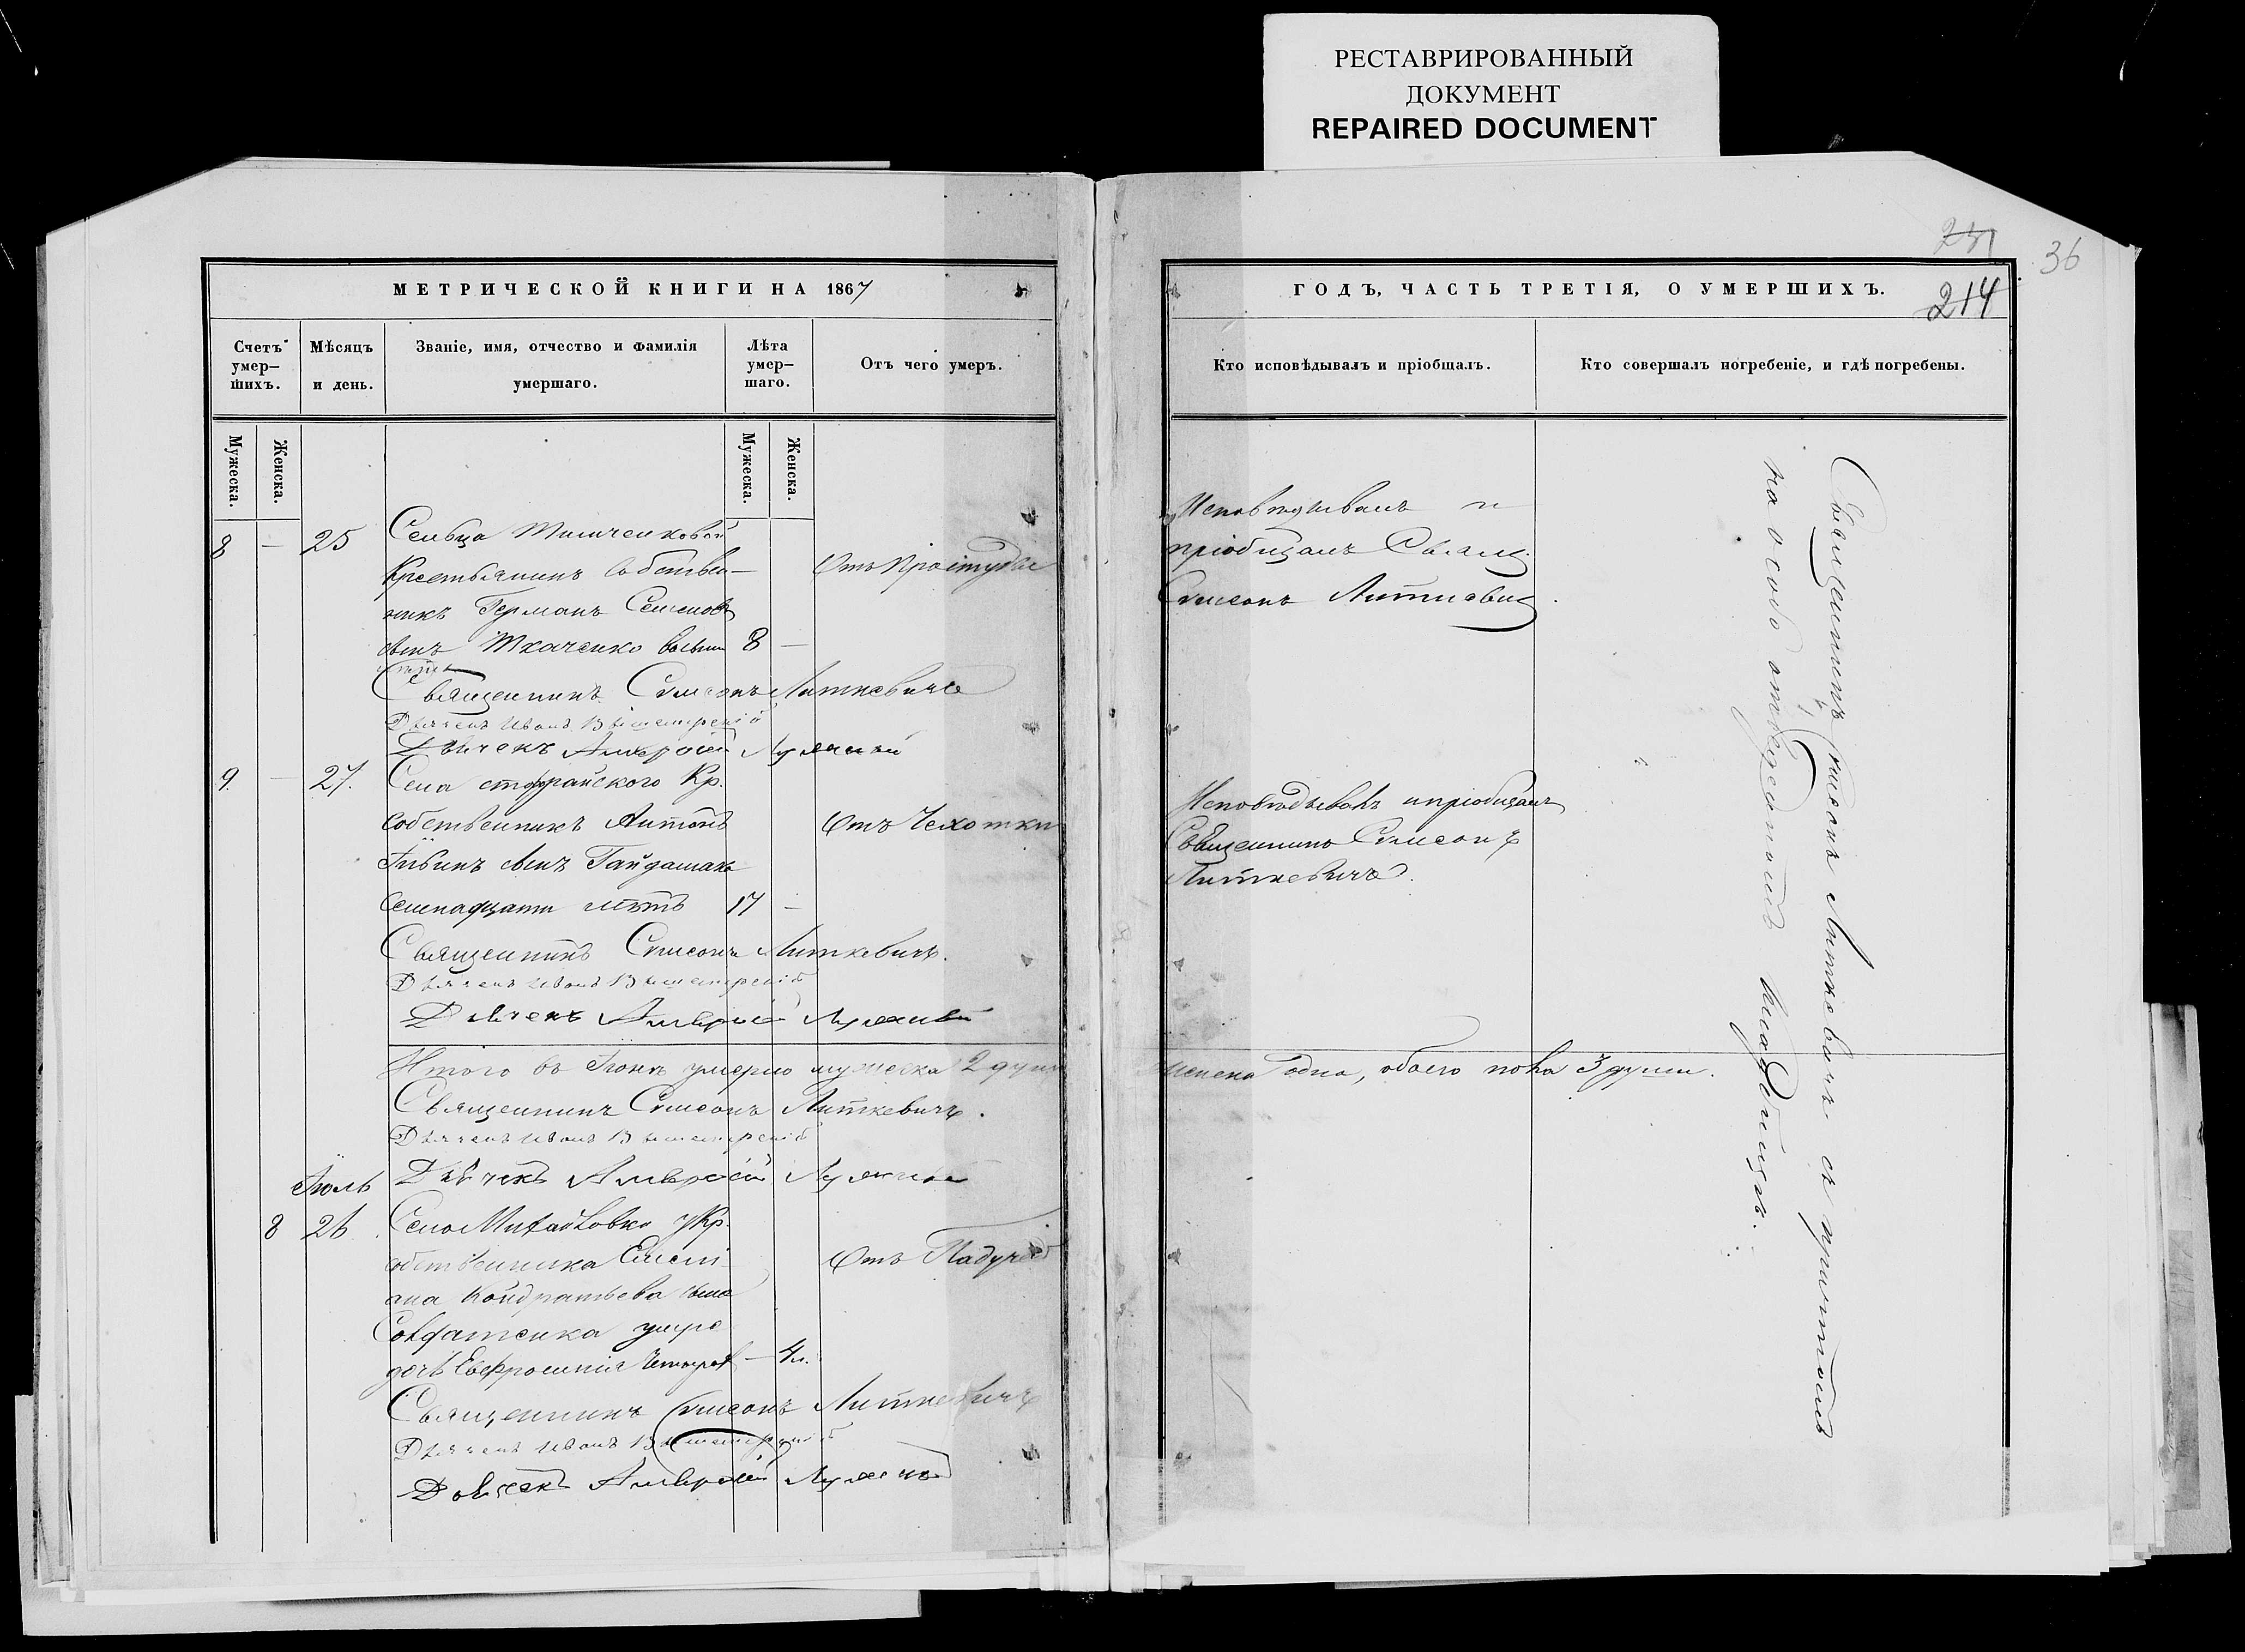 РЕСТАВРИРОВАННЫЙ
ДОКУМЕНТ
REPAIRED DOCUMENT
36
214
МЕТРИЧЕСКОЙ КНИГИ НА 1867
Счетъ умер–шихъ.
Мѣсяцъ и день.
Званіе, имя, отчество и фамилія умершаго.
Лѣта умер–шаго.
Отъ чего умеръ.
Мужеска.
Женска.
Мужеска.
Женска.
8 — 25 Сельца
Крестьянинъ собствен– Отъ Простуды
никъ Германъ Семеновъ
сынъ Ткаченко восьми 8 —
лѣтъ
Священникъ Симеонъ Литкевичъ
Дьячекъ Иванъ
Дьячекъ Амвросій
9 — 27. Села Кр.
собственникъ Антонъ Отъ Чехотки
сынъ Гайдамака
семнадцати лѣтъ 17 —
Священникъ Симеонъ Литкевичъ.
Дьячекъ Иванъ
Дьячекъ Амвросій
Итого въ Іюнѣ умерло мужеска 2 души
Священникъ Симеонъ Литкевичъ.
Дьячекъ Иванъ
Іюль Дьячекъ Амвросій
8 26. Села Михайловки у Кр.
собственника Емели–
ана Кондратьева сына Отъ Падучей
Солдатенка умре
дочь Евфросинія Четырехъ — 4 л.
Священникъ Симеонъ Литкевичъ
Дьячекъ Иванъ
Дьячекъ Амвросій
ГОДЪ, ЧАСТЬ ТРЕТІЯ, О УМЕРШИХЪ.
Кто исповѣдывалъ и пріобщалъ.
Кто совершалъ погребеніе, и гдѣ погребены.
Исповѣдывалъ и
пріобщалъ Свящ.
Симеонъ Литкевич.
Исповѣдывалъ и пріобщалъ
Священникъ Симеонъ
Литкевичъ.
женска одна, обоего пола 3 души.
Священникъ Симеонъ Литкевичъ съ причтомъ
на особо отведенномъ кладбищѣ.